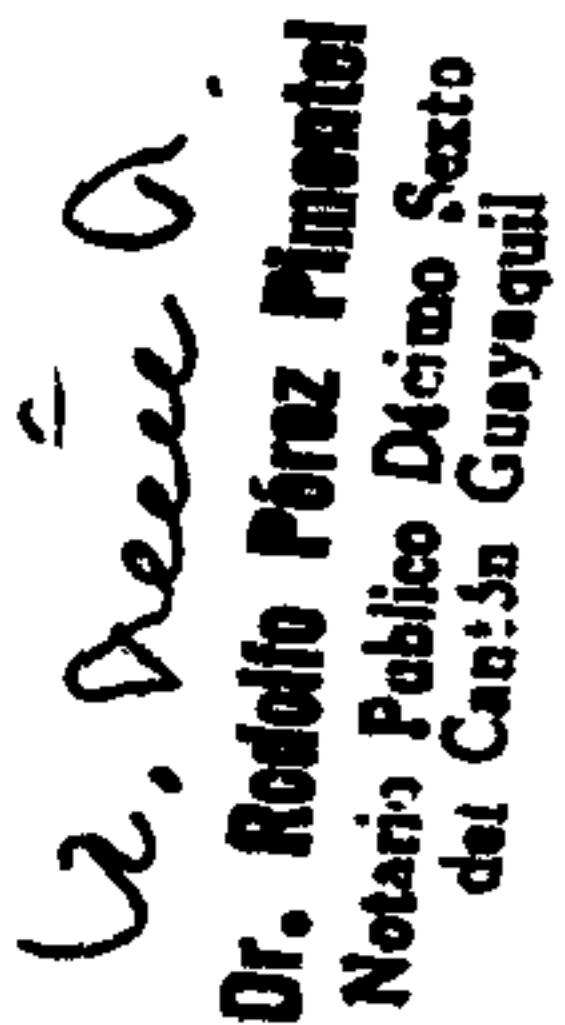 Dr. Rodolfo Pérez Pimentel
Notario Publico Décimo Sexto
del Cantón Guayaquil